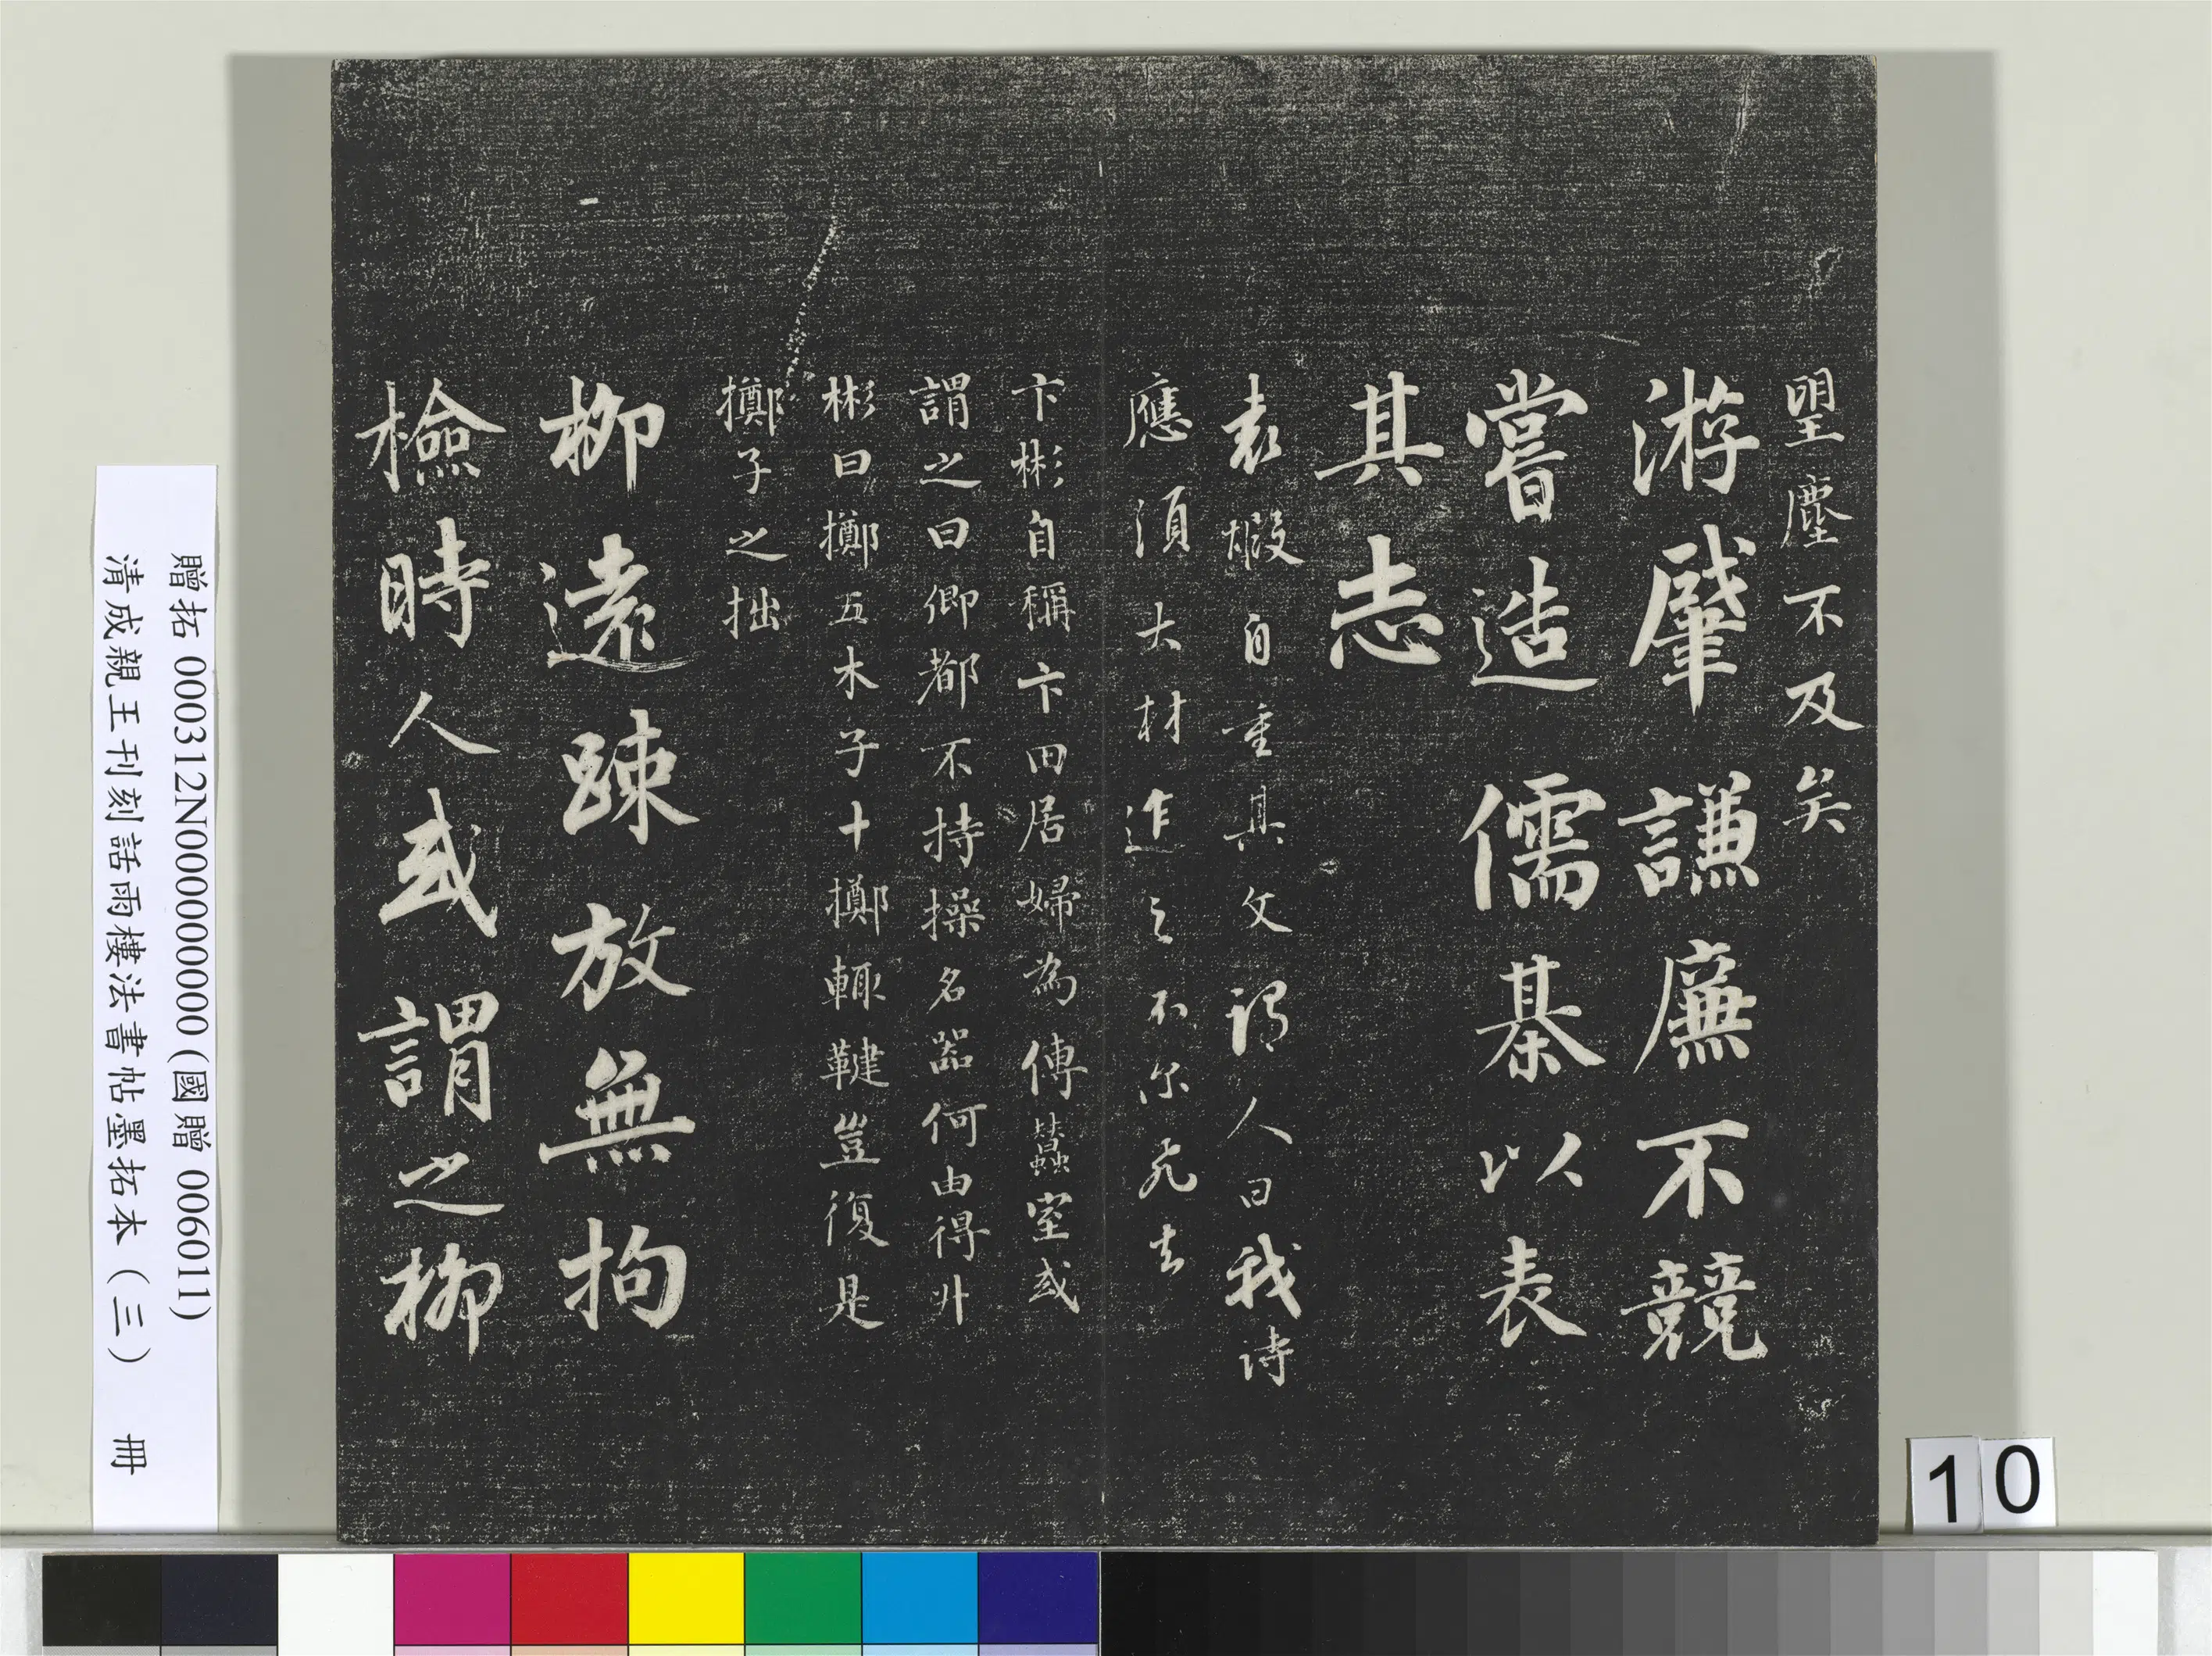 望塵不及矣
游肇謙廉不競
嘗造儒棊以表
其志
袁嘏自重其文謂人曰我詩
應須大材迮之不尔飛去
卞彬自稱卞田居婦為傅蠶室或
謂之曰卿都不持操名器何由得升
彬曰擲五木子十擲輒鞬豈復是
擲子之拙
柳遠踈放無拘
檢時人或謂之柳
贈拓 000312N000000000 (國贈 006011)
清成親王刊刻詒晉樓法書帖墨拓本（三） 冊
10